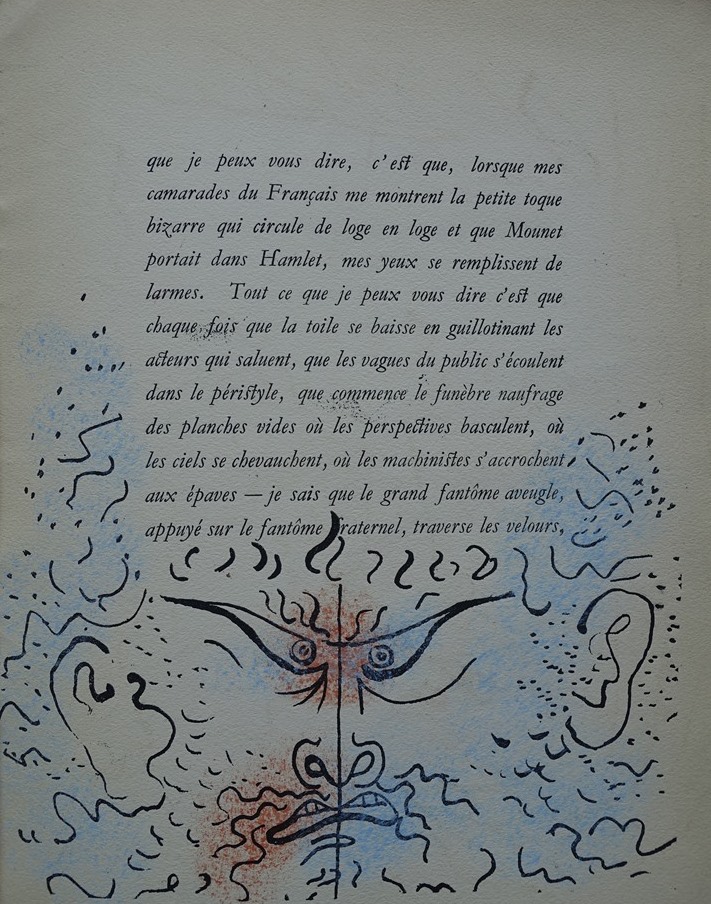 que je peux vous dire, c'est que, lorsque mes
camarades du Français me montrent la petite toque
bizarre qui circule de loge en loge et que Mounet
portait dans Hamlet, mes yeux se remplissent de
larmes. Tout ce que je peux vous dire c'est que
chaque fois que la toile se baisse en guillotinant les
acteurs qui saluent, que les vagues du public s'écoulent
dans le péristyle, que commence le funèbre naufrage
des planches vides où les perspectives basculent, où
les ciels se chevauchent, où les machinistes s'accrochent
aux épaves — je sais que le grand fantôme aveugle,
appuyé sur le fantôme fraternel, traverse les velours,